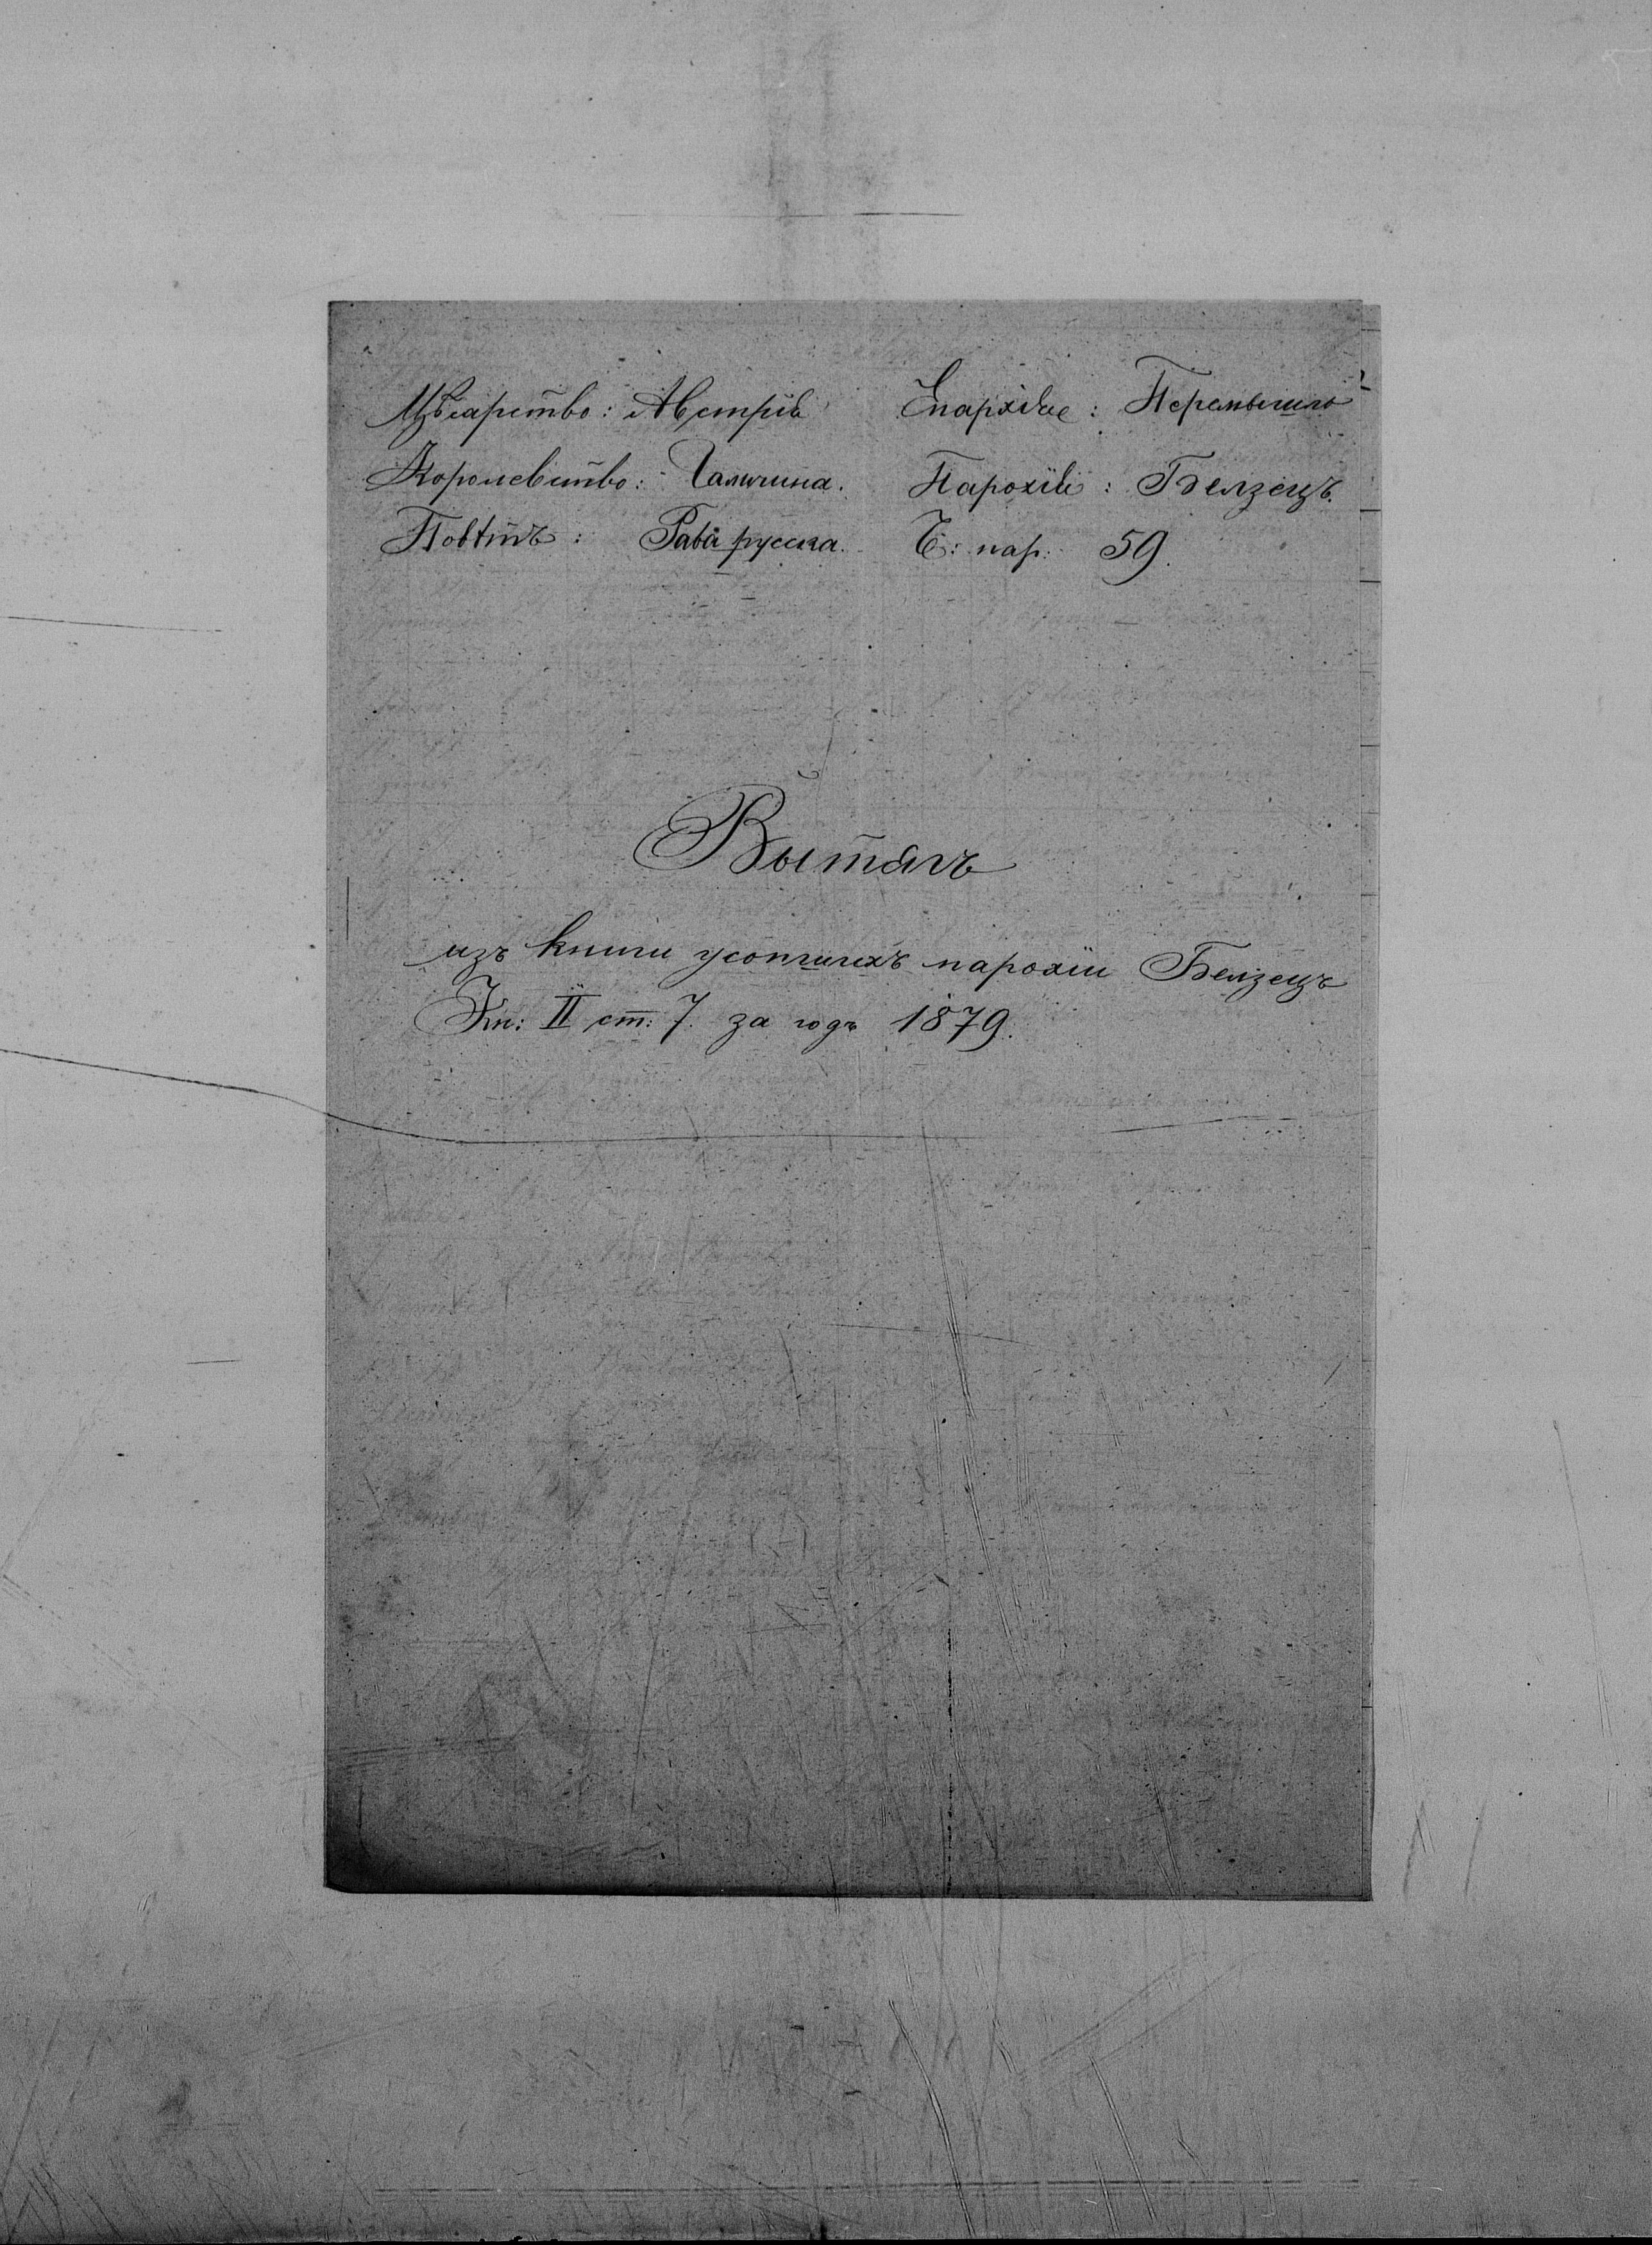 Цѣсарство: Австрія Епархія: Перемышль
Королевство: Галичина. Парохія: Белзець.
Повѣтъ: Рава русска. Ч: пар: 59.
Вытягъ
изъ книги усопшихъ парохіи Белзець
Кн: II ст: 7. за годъ 1879.